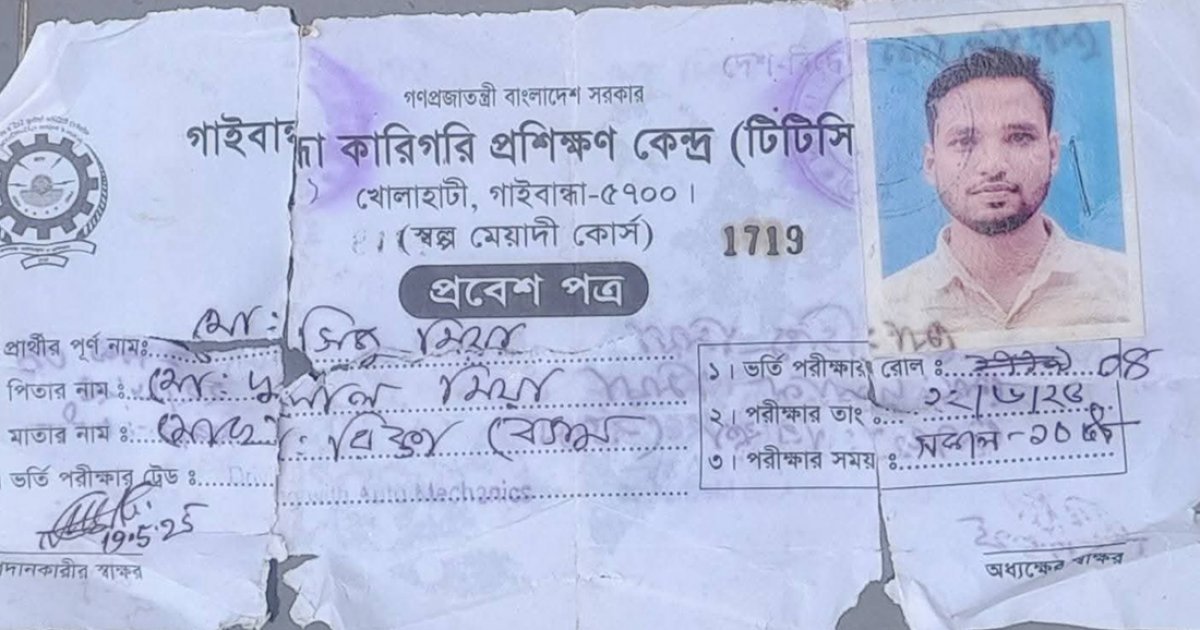 গণপ্রজাতন্ত্রী বাংলাদেশ সরকার
গাইবান্ধা কারিগরি প্রশিক্ষণ কেন্দ্র (টিটিসি
খোলাহাটী, গাইবান্ধা-৫৭০০।
(স্বল্প মেয়াদী কোর্স)
1719
প্রবেশ পত্র
প্রার্থীর পূর্ণ নামঃ মোঃ মিয়া
পিতার নাম ঃ মোঃ দুলাল মিয়া
মাতার নাম ঃ মোছাঃ বেগম
ভর্তি পরীক্ষার ট্রেড ঃ Driving with Auto Mechanics
১। ভর্তি পরীক্ষার রোল ঃ 08
২। পরীক্ষার তাং ঃ
৩। পরীক্ষার সময় ঃ সকাল-
19.5.25
দানকারীর স্বাক্ষর
অধ্যক্ষের স্বাক্ষর